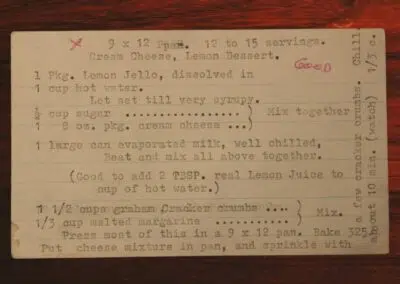 x 9 x 12 Ppan. 12 to 15 servings.
Cream Cheese, Lemon Dessert.
GOOD
1 Pkg. Lemon Jello, dissolved in
1 cup hot water.
Let set till very syrupy.
½ cup sugar ..................)
1 8 oz. pkg. cream cheese ...) Mix together
1 large can evaporated milk, well chilled,
Beat and mix all above together.
(Good to add 2 TBSP. real Lemon Juice to
cup of hot water.)
1 1/2 cups graham Cracker crumbs ...)
1/3 cup melted margarine ...........) Mix.
Press most of this in a 9 x 12 pan. Bake 325
Put cheese mixture in pan, and sprinkle with
about 10 min. (watch) 1/3 c.
a few cracker crumbs. Chill